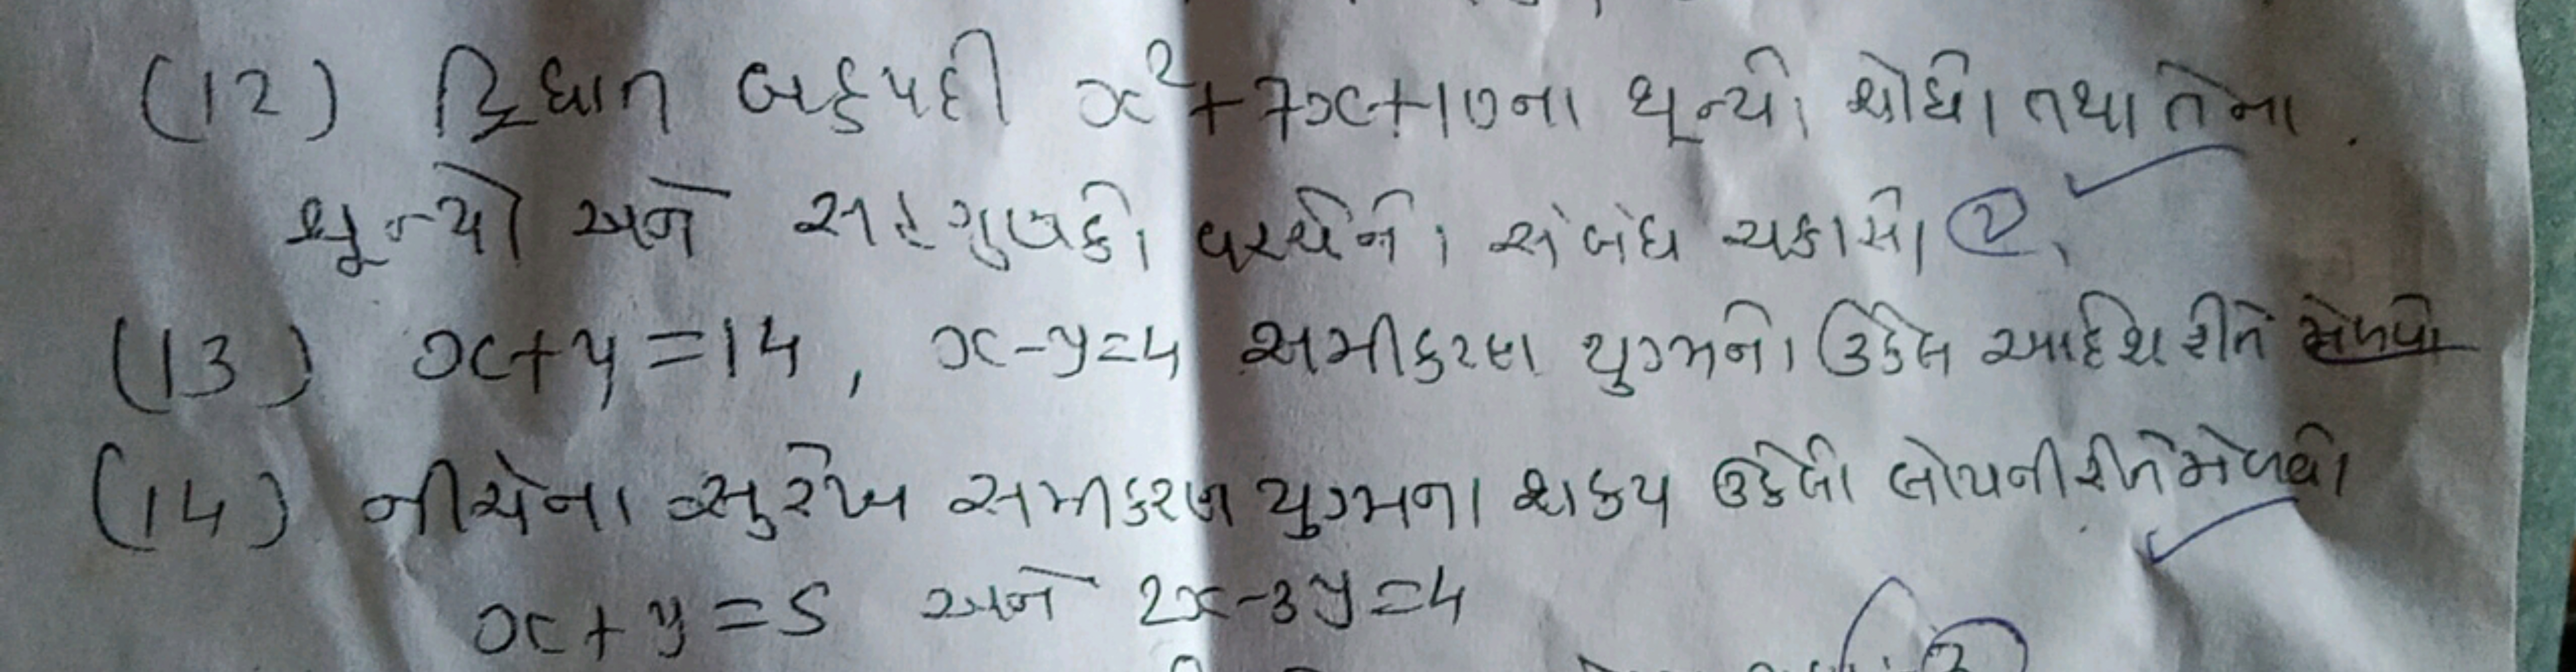 (12) દ્વિઘાત બહુપદી x²+7x+10ના શૂન્યો શોધો તથા તેના
શૂન્યો અને સહગુણકો વચ્ચેનો સંબંધ ચકાસો 2
(13) x+y=14, x-y=4 સમીકરણ યુગ્મનો ઉકેલ આદેશ રીતે મેળવો
(14) નીચેના સુરેખ સમીકરણ યુગ્મના શકય ઉકેલો લોપની રીતે મેળવો
x+y=5 અને 2x-3y=4